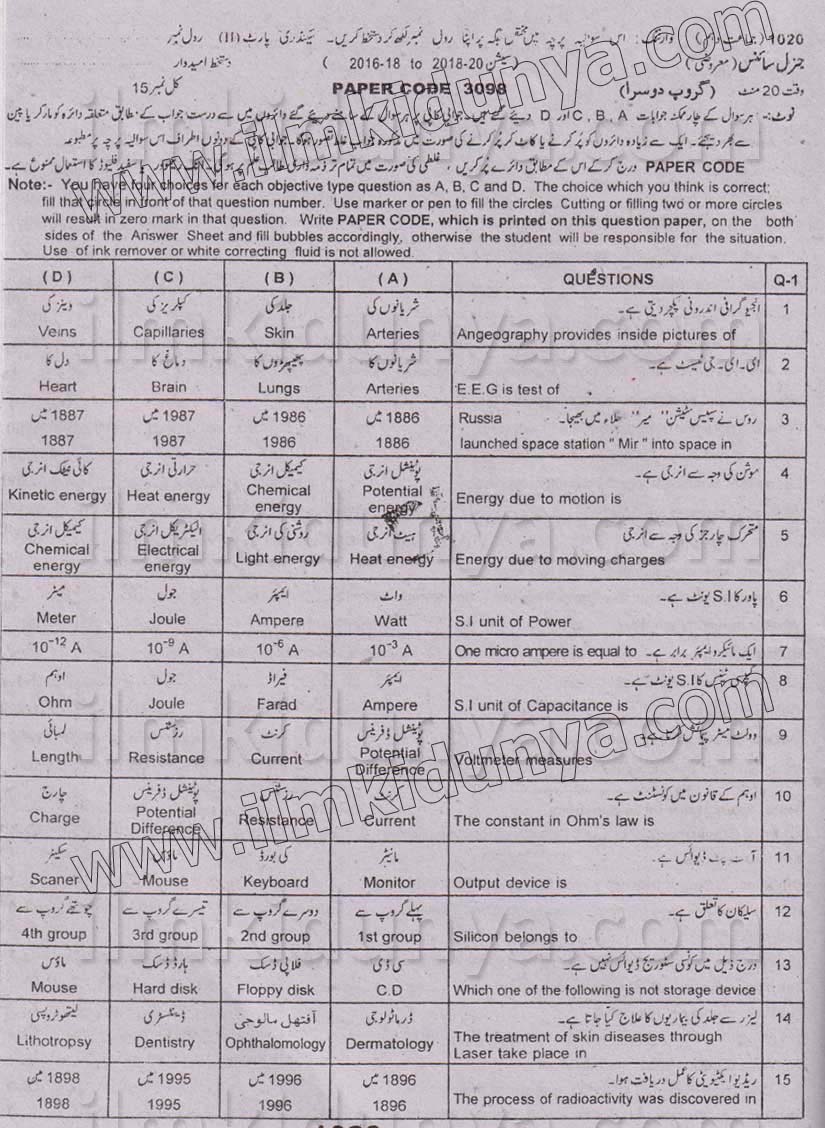 1020 (جماعت دہم) وارننگ: اس سوالیہ پرچہ میں مختص جگہ پر اپنا رول نمبر لکھ کر دستخط کریں۔ سیکنڈری پارٹ (II) رول نمبر
جنرل سائنس (معروضی) (سیشن 20-2018 to 2016-18) دستخط امیدوار
وقت 20 منٹ (گروپ دوسرا) PAPER CODE 3098 کل نمبر 15
نوٹ:- ہر سوال کے چار ممکنہ جوابات A , B , C اور D دیئے گئے ہیں۔ جوابی کاپی پر ہر سوال کے سامنے دیئے گئے دائروں میں سے درست جواب کے مطابق متعلقہ دائرہ کو مارکر یا پین
سے بھر دیجئے۔ ایک سے زیادہ دائروں کو پُر کرنے یا کاٹ کر پُر کرنے کی صورت میں مذکورہ جواب غلط تصور ہوگا۔ جوابی کاپی کے دونوں اطراف اس سوالیہ پرچہ پر مطبوعہ
PAPER CODE درج کرکے اس کے مطابق دائرے پُر کریں، غلطی کی صورت میں تمام تر ذمہ داری طالب علم پر ہوگی۔ سفید فلیوڈ کا استعمال ممنوع ہے۔
Note:- You have four choices for each objective type question as A, B, C and D. The choice which you think is correct;
fill that circle in front of that question number. Use marker or pen to fill the circles Cutting or filling two or more circles
will result in zero mark in that question. Write PAPER CODE, which is printed on this question paper, on the both
sides of the Answer Sheet and fill bubbles accordingly, otherwise the student will be responsible for the situation.
Use of ink remover or white correcting fluid is not allowed.
(D) (C) (B) (A) QUESTIONS Q-1
وینز کی کیپلریز کی جلد کی شریانوں کی انجیوگرافی اندرونی پکچر دیتی ہے۔ 1
Veins Capillaries Skin Arteries Angeography provides inside pictures of
دل کا دماغ کا پھیپھڑوں کا شریانوں کا ای۔ای۔جی ٹیسٹ ہے۔ 2
Heart Brain Lungs Arteries E.E.G is test of
1887 میں 1987 میں 1986 میں 1886 میں روس نے سپیس سٹیشن "میر" خلاء میں بھیجا۔ Russia 3
1887 1987 1986 1886 launched space station " Mir " into space in
کائی نیٹک انرجی حرارتی انرجی کیمیکل انرجی پوٹینشل انرجی موشن کی وجہ سے انرجی ہے۔ 4
Kinetic energy Heat energy Chemical energy Potential energy Energy due to motion is
کیمیکل انرجی الیکٹریکل انرجی روشنی کی انرجی ہیٹ انرجی متحرک چارجز کی وجہ سے انرجی 5
Chemical energy Electrical energy Light energy Heat energy Energy due to moving charges
میٹر جول ایمپئر واٹ پاور کا S.I یونٹ ہے۔ 6
Meter Joule Ampere Watt S.I unit of Power
10⁻¹² A 10⁻⁹ A 10⁻⁶ A 10⁻³ A One micro ampere is equal to ایک مائیکرو ایمپئر برابر ہے۔ 7
اوہم جول فیراڈ ایمپئر کپیسی ٹینس کا S.I یونٹ ہے۔ 8
Ohm Joule Farad Ampere S.I unit of Capacitance is
لمبائی رزسٹنس کرنٹ پوٹینشل ڈفرینس وولٹ میٹر 9
Length Resistance Current Potential Difference Voltmeter measures
چارج پوٹینشل ڈفرینس رزسٹنس کرنٹ اوہم کے قانون میں کونسٹنٹ ہے۔ 10
Charge Potential Difference Resistance Current The constant in Ohm's law is
سکینر ماؤس کی بورڈ مانیٹر آؤٹ پٹ ڈیوائس ہے۔ 11
Scaner Mouse Keyboard Monitor Output device is
چوتھے گروپ سے تیسرے گروپ سے دوسرے گروپ سے پہلے گروپ سے سلیکان کا تعلق ہے۔ 12
4th group 3rd group 2nd group 1st group Silicon belongs to
ماؤس ہارڈ ڈسک فلاپی ڈسک سی ڈی درج ذیل میں کونسی سٹوریج ڈیوائس نہیں ہے۔ 13
Mouse Hard disk Floppy disk C.D Which one of the following is not storage device
لیتھوٹروپسی ڈینٹسٹری آفتھل مالوجی ڈرماٹولوجی لیزر سے جلد کی بیماریوں کا علاج کیا جاتا ہے۔ 14
Lithotropsy Dentistry Ophthalomology Dermatology The treatment of skin diseases through Laser take place in
1898 میں 1995 میں 1996 میں 1896 میں ریڈیو ایکٹیویٹی کا عمل دریافت ہوا۔ 15
1898 1995 1996 1896 The process of radioactivity was discovered in
www.ilmkidunya.com
www.ilmkidunya.com
ilmkidunya.com